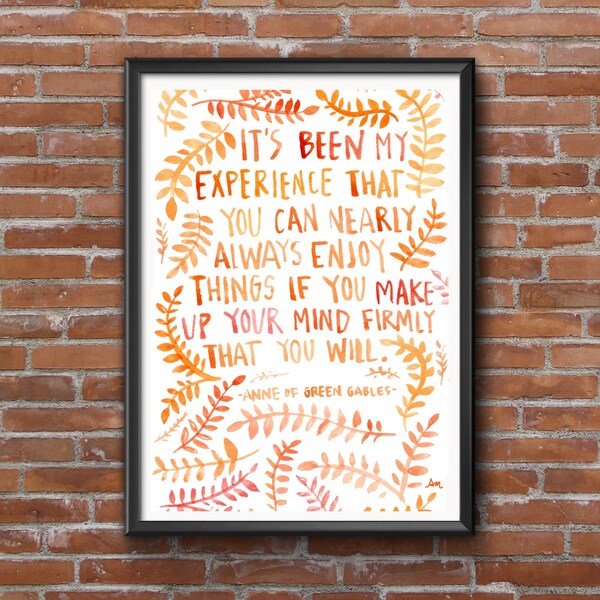 IT'S BEEN MY
EXPERIENCE THAT
YOU CAN NEARLY
ALWAYS ENJOY
THINGS IF YOU MAKE
UP YOUR MIND FIRMLY
THAT YOU WILL.
-ANNE OF GREEN GABLES-
AM